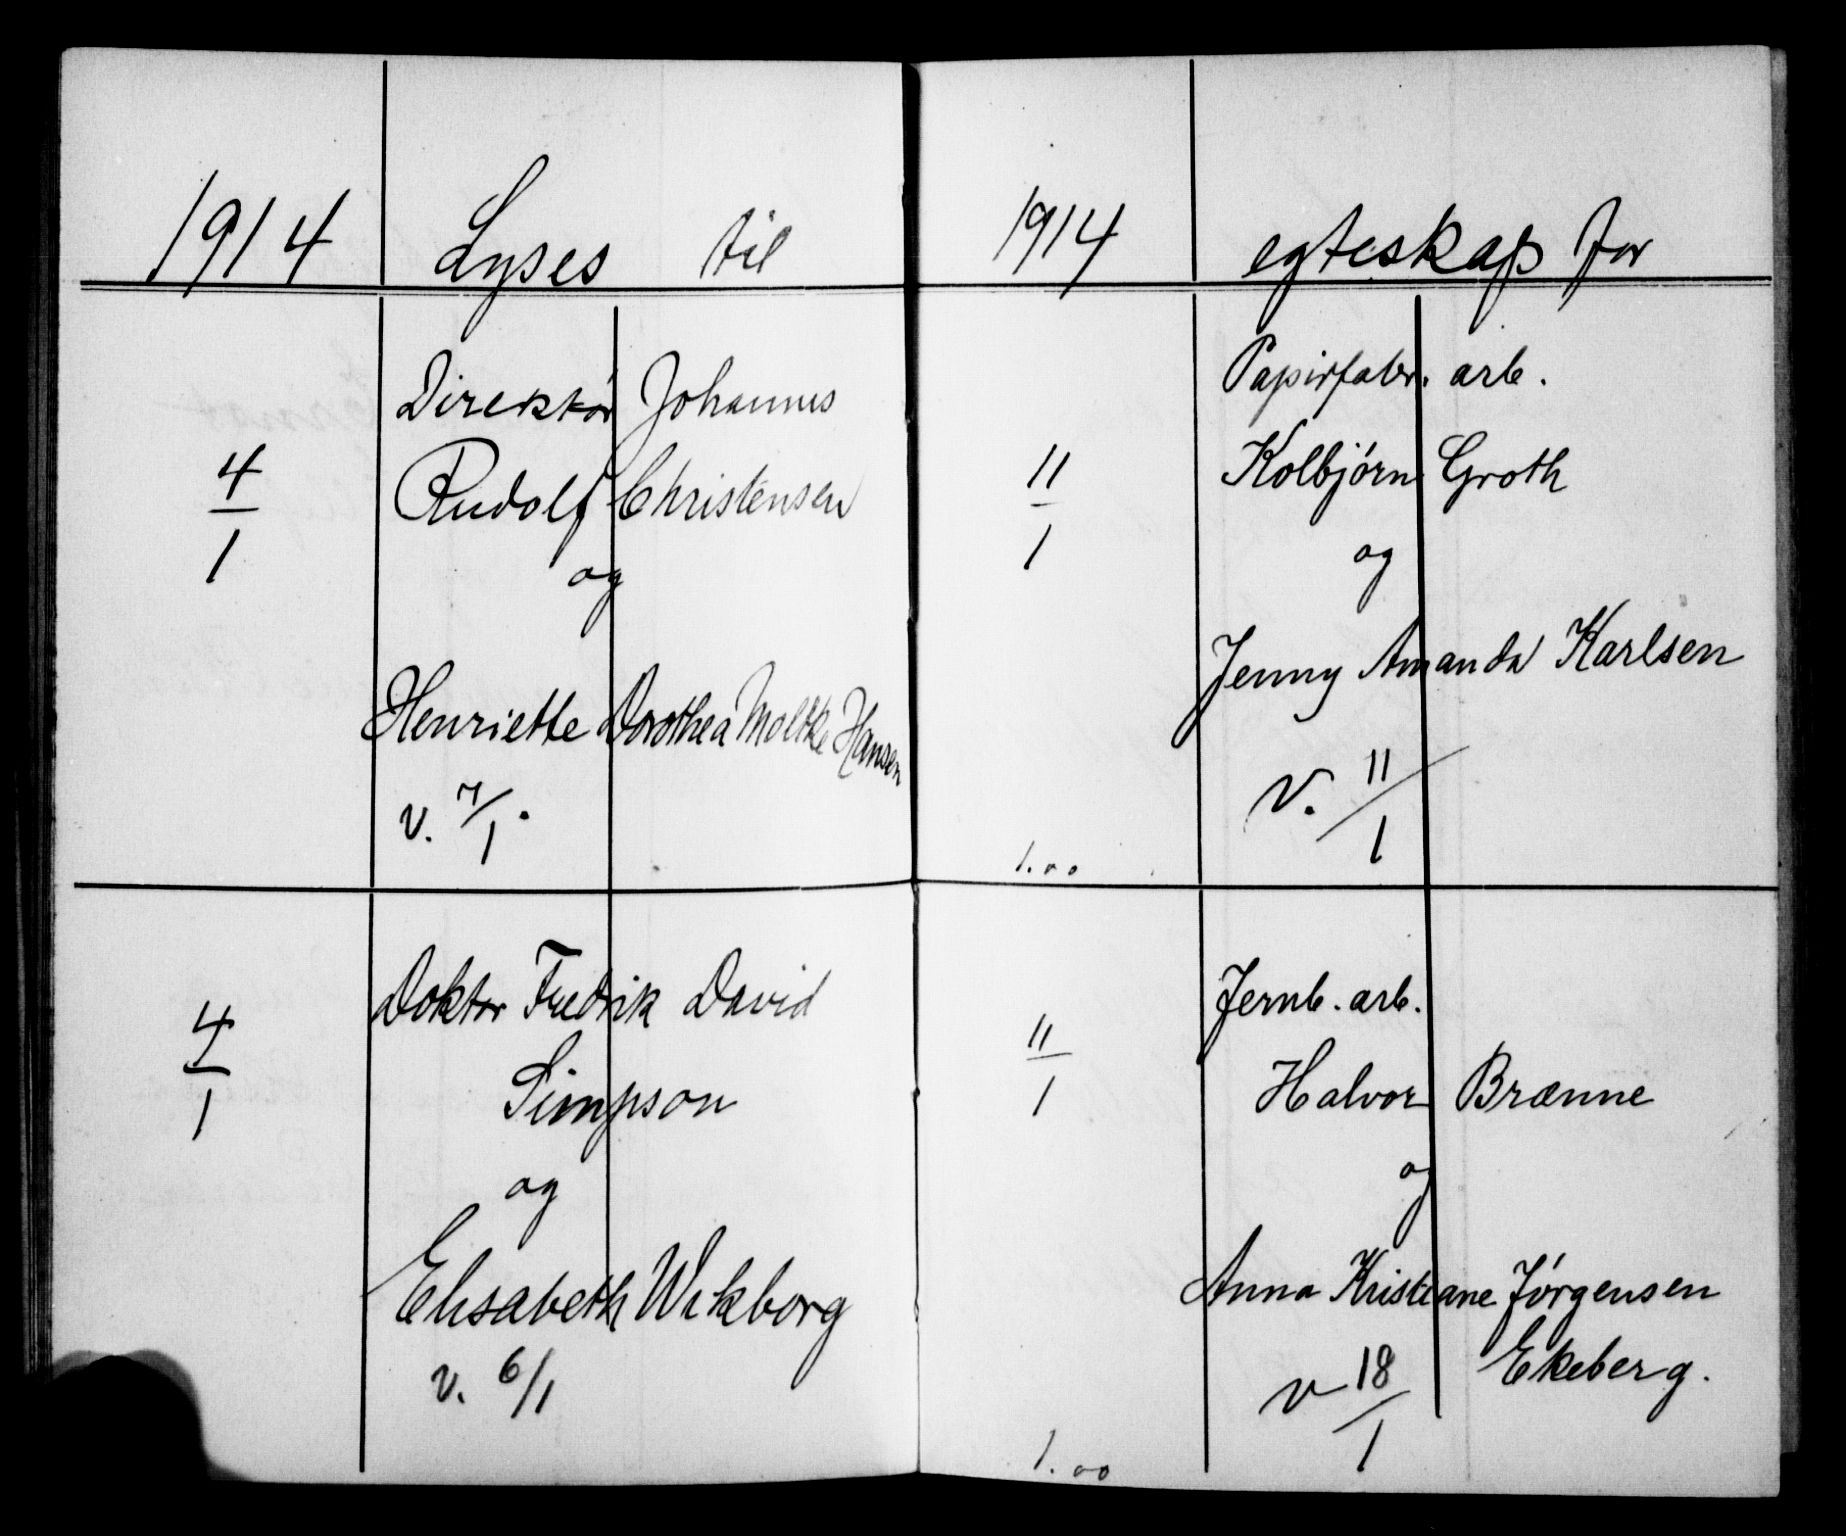 1914 Lyses til
4/1
Direktør Johannes
Rudolf Christensen
og
Henriette Dorothea Moltke Hansen
v. 7/1.
4/1
Doktor Fredrik David
Simpson
og
Elisabeth Wikborg
v. 6/1
1914 egteskap for
11/1
Papirfabr. arb.
Kolbjørn Groth
og
Jenny Amanda Karlsen
V. 11/1
1.00
11/1
Jernb. arb.
Halvor Brænne
og
Anna Kristiane Jørgensen
Ekeberg.
v 18/1
1.00